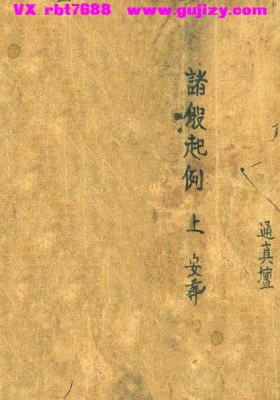 VX rbt7688 www.gujizy.com
諸般起例 上 安葬
通真壇